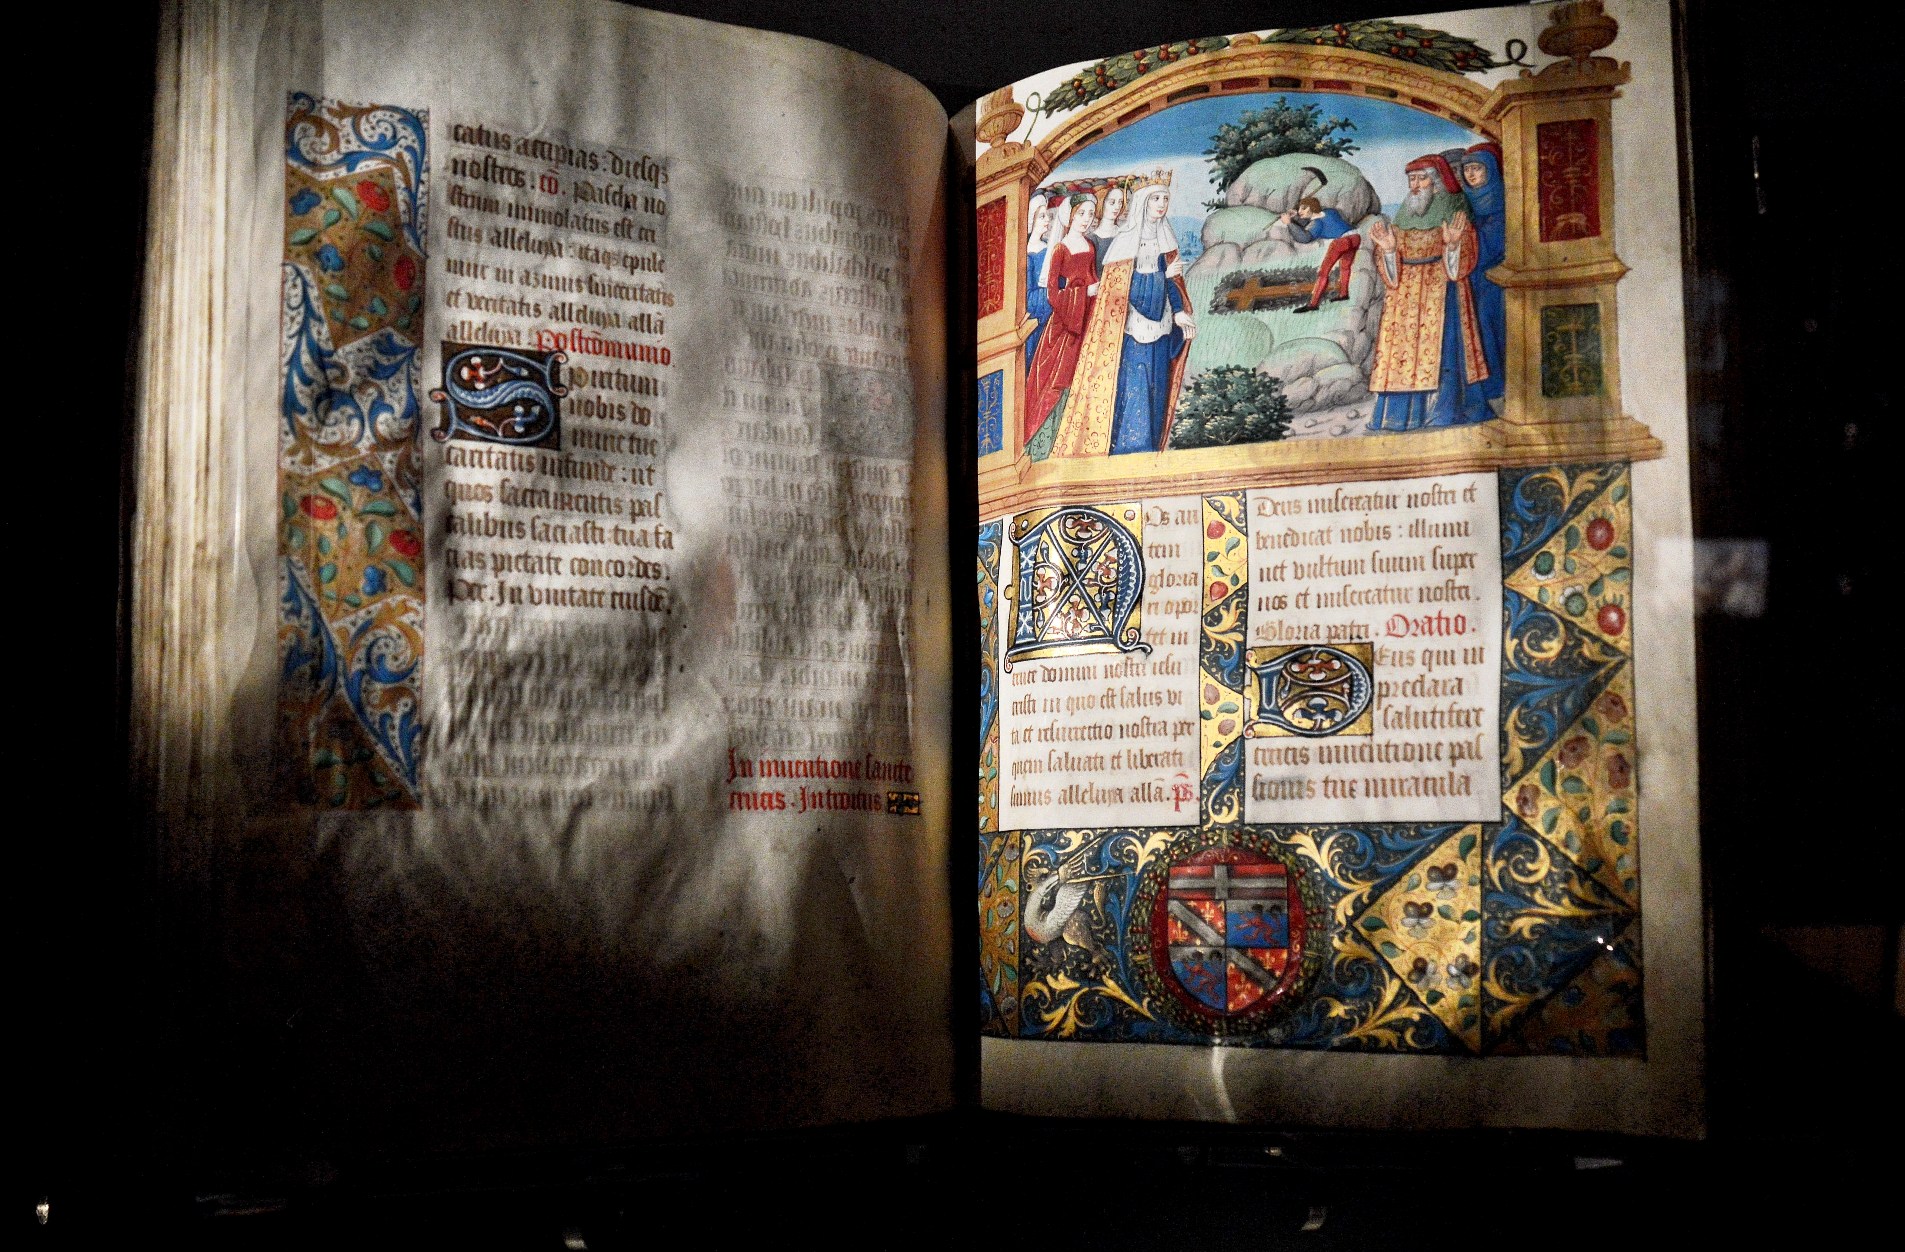 catus accipias: diesqz
nostros. co. Pascha no
strum immolatus est cri
stus alleluya: itaqz epule
mur in azimis sinceritatis
et veritatis alleluya alla
alleluya. Postcomunio.
Spiritum
nobis do
mine tue
caritatis infunde: ut
quos sacramentis pas
calibus saciasti tua fa
cias pietate concordes.
Per. In unitate eiusde.
In inuentione sancte
crucis. Introitus
Nos au
tem
gloria
ri opor
tet in
cruce domini nostri iesu
cristi in quo est salus vi
ta et resurrectio nostra per
quem saluati et liberati
sumus alleluya alla. ps.
Deus misereatur nostri et
benedicat nobis: illumi
net vultum suum super
nos et misereatur nostri.
Gloria patri. Oratio.
Deus qui in
preclara
salutifere
crucis inuentione pas
sionis tue miracula